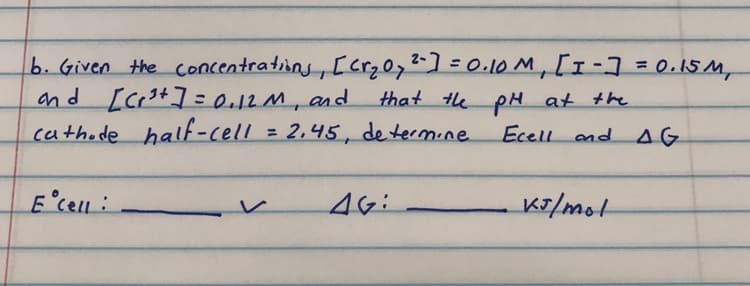 b. Given the concentrations, [Cr₂O₇²⁻] = 0.10 M, [I-] = 0.15 M,
and [Cr³⁺] = 0.12 M, and that the pH at the
cathode half-cell = 2.45, determine Ecell and ΔG
E°cell: ______ v ΔG: ______ KJ/mol